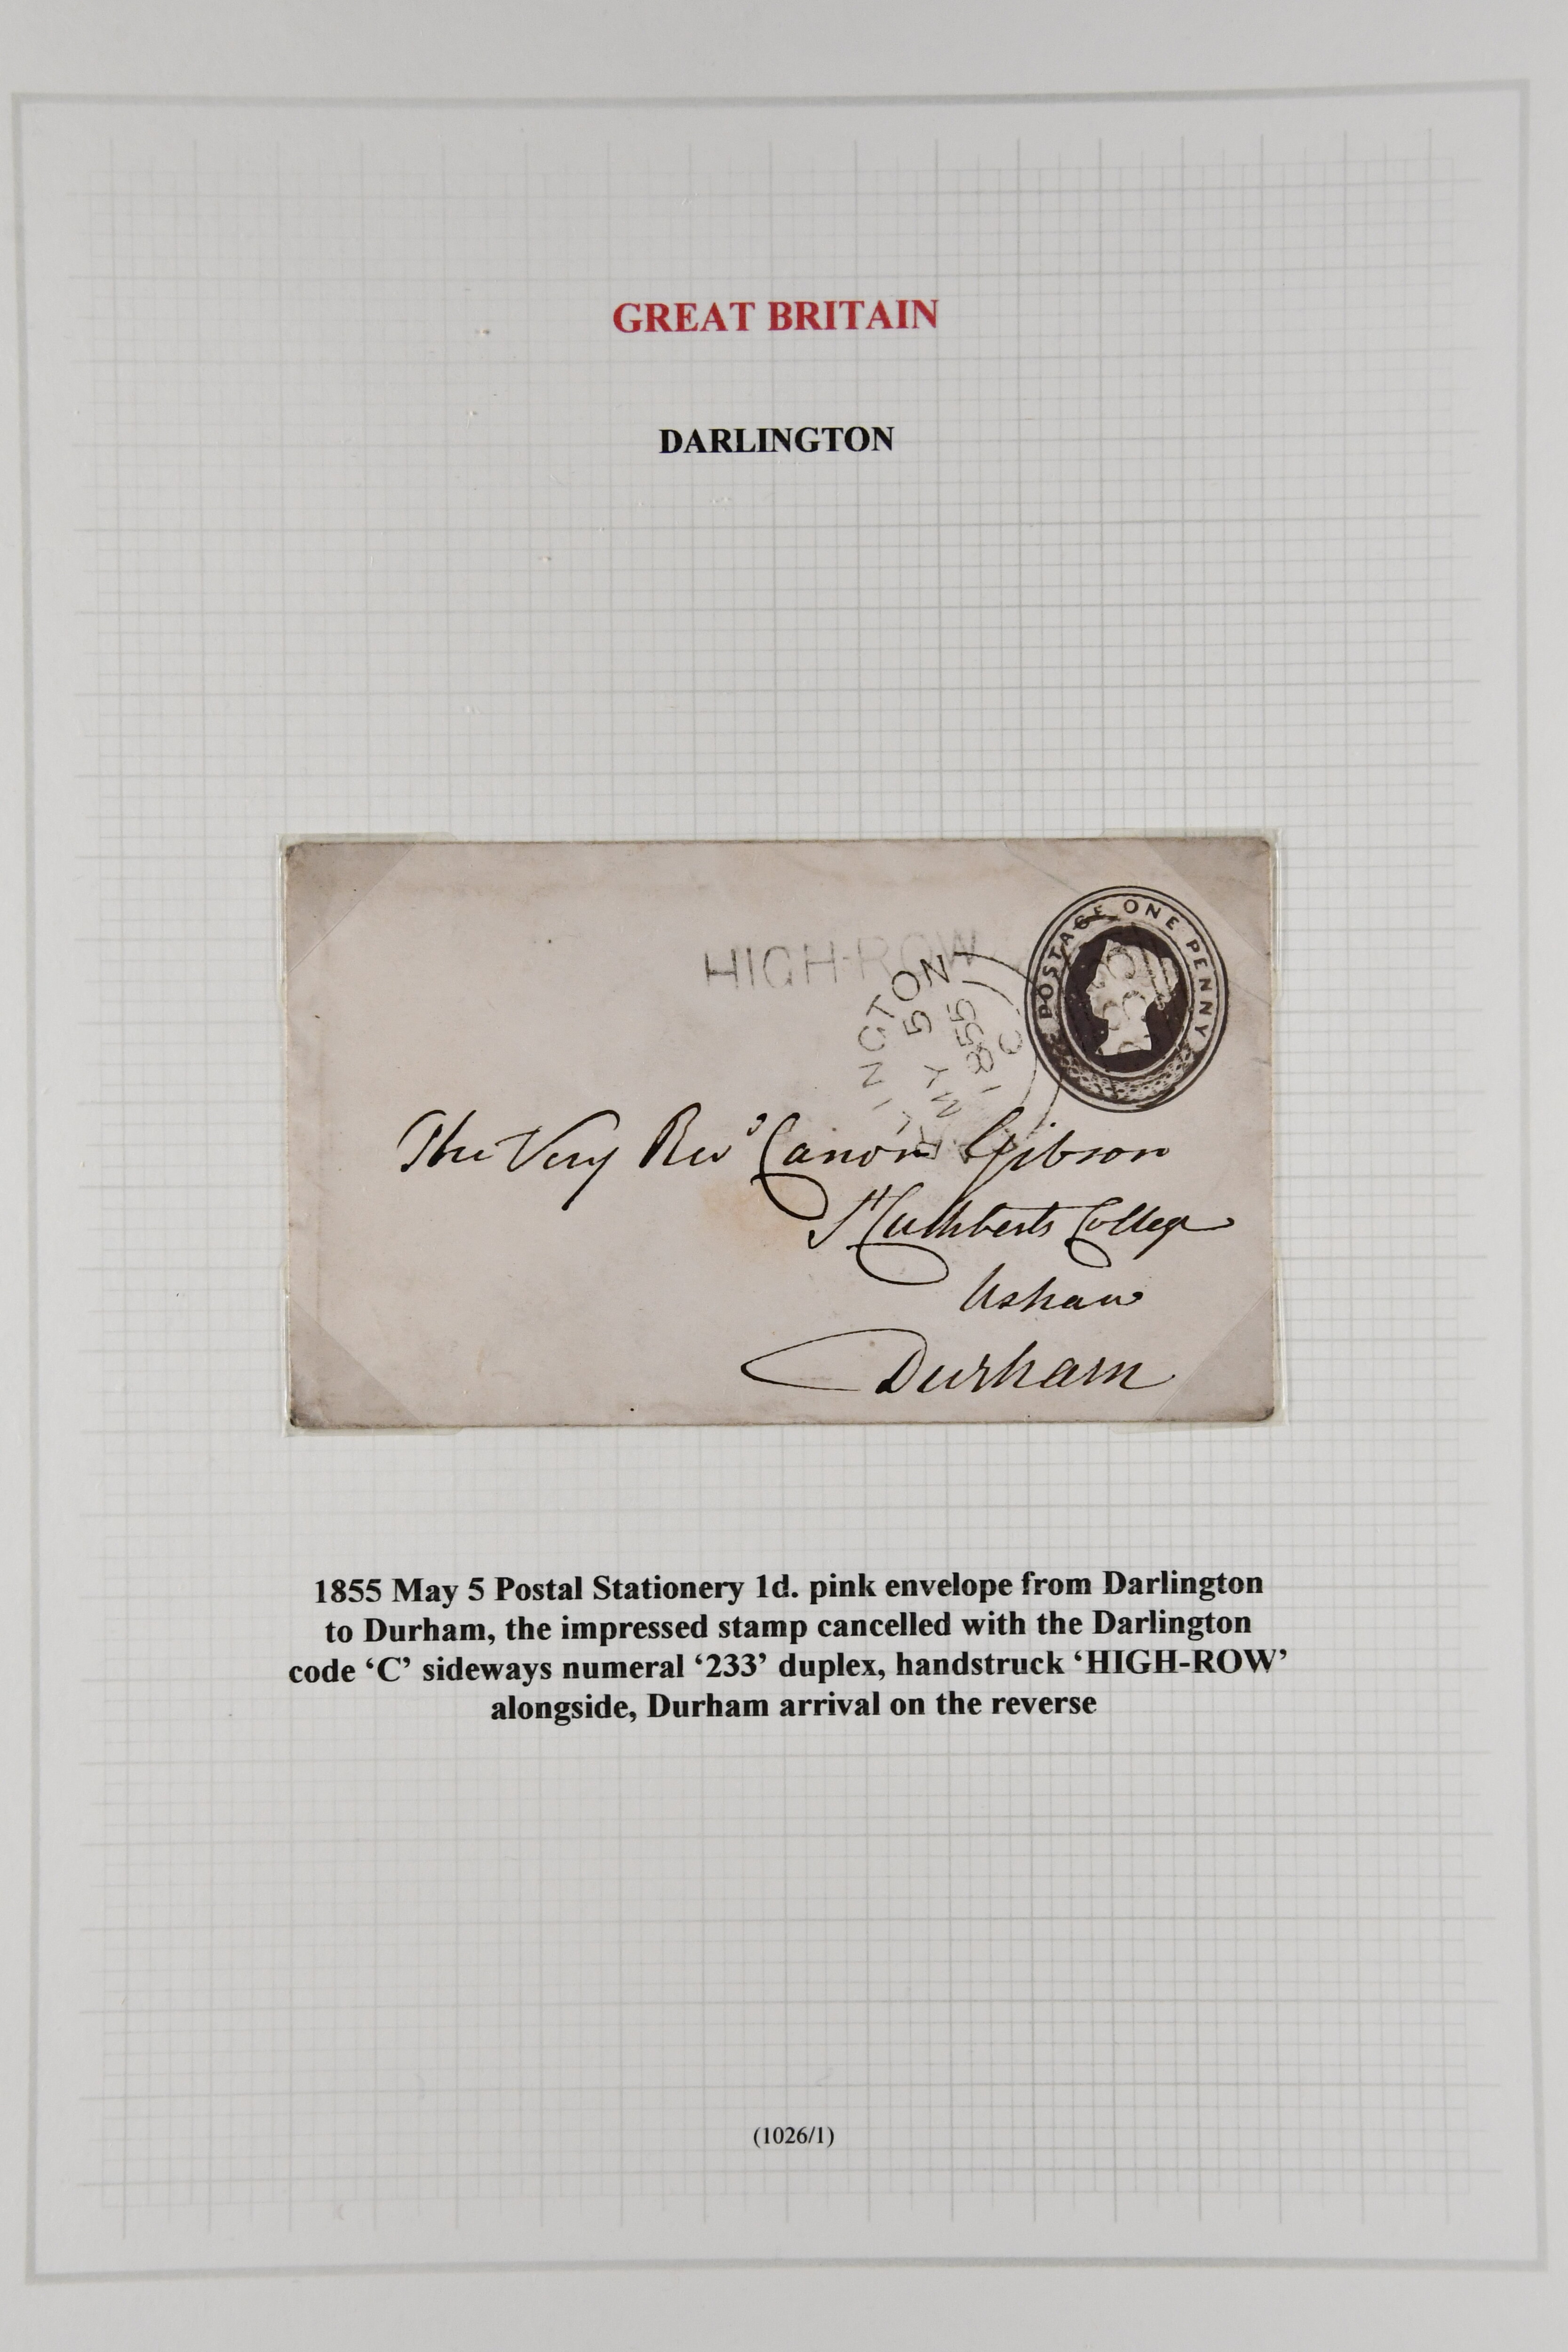 GREAT BRITAIN
DARLINGTON
HIGH-ROW
POSTAGE ONE PENNY
LINGTON
MY 5
1855
C
The Very Revd Canon Gibson
St Cuthberts College
Ushaw
Durham
1855 May 5 Postal Stationery 1d. pink envelope from Darlington
to Durham, the impressed stamp cancelled with the Darlington
code ‘C’ sideways numeral ‘233’ duplex, handstruck ‘HIGH-ROW’
alongside, Durham arrival on the reverse
(1026/1)